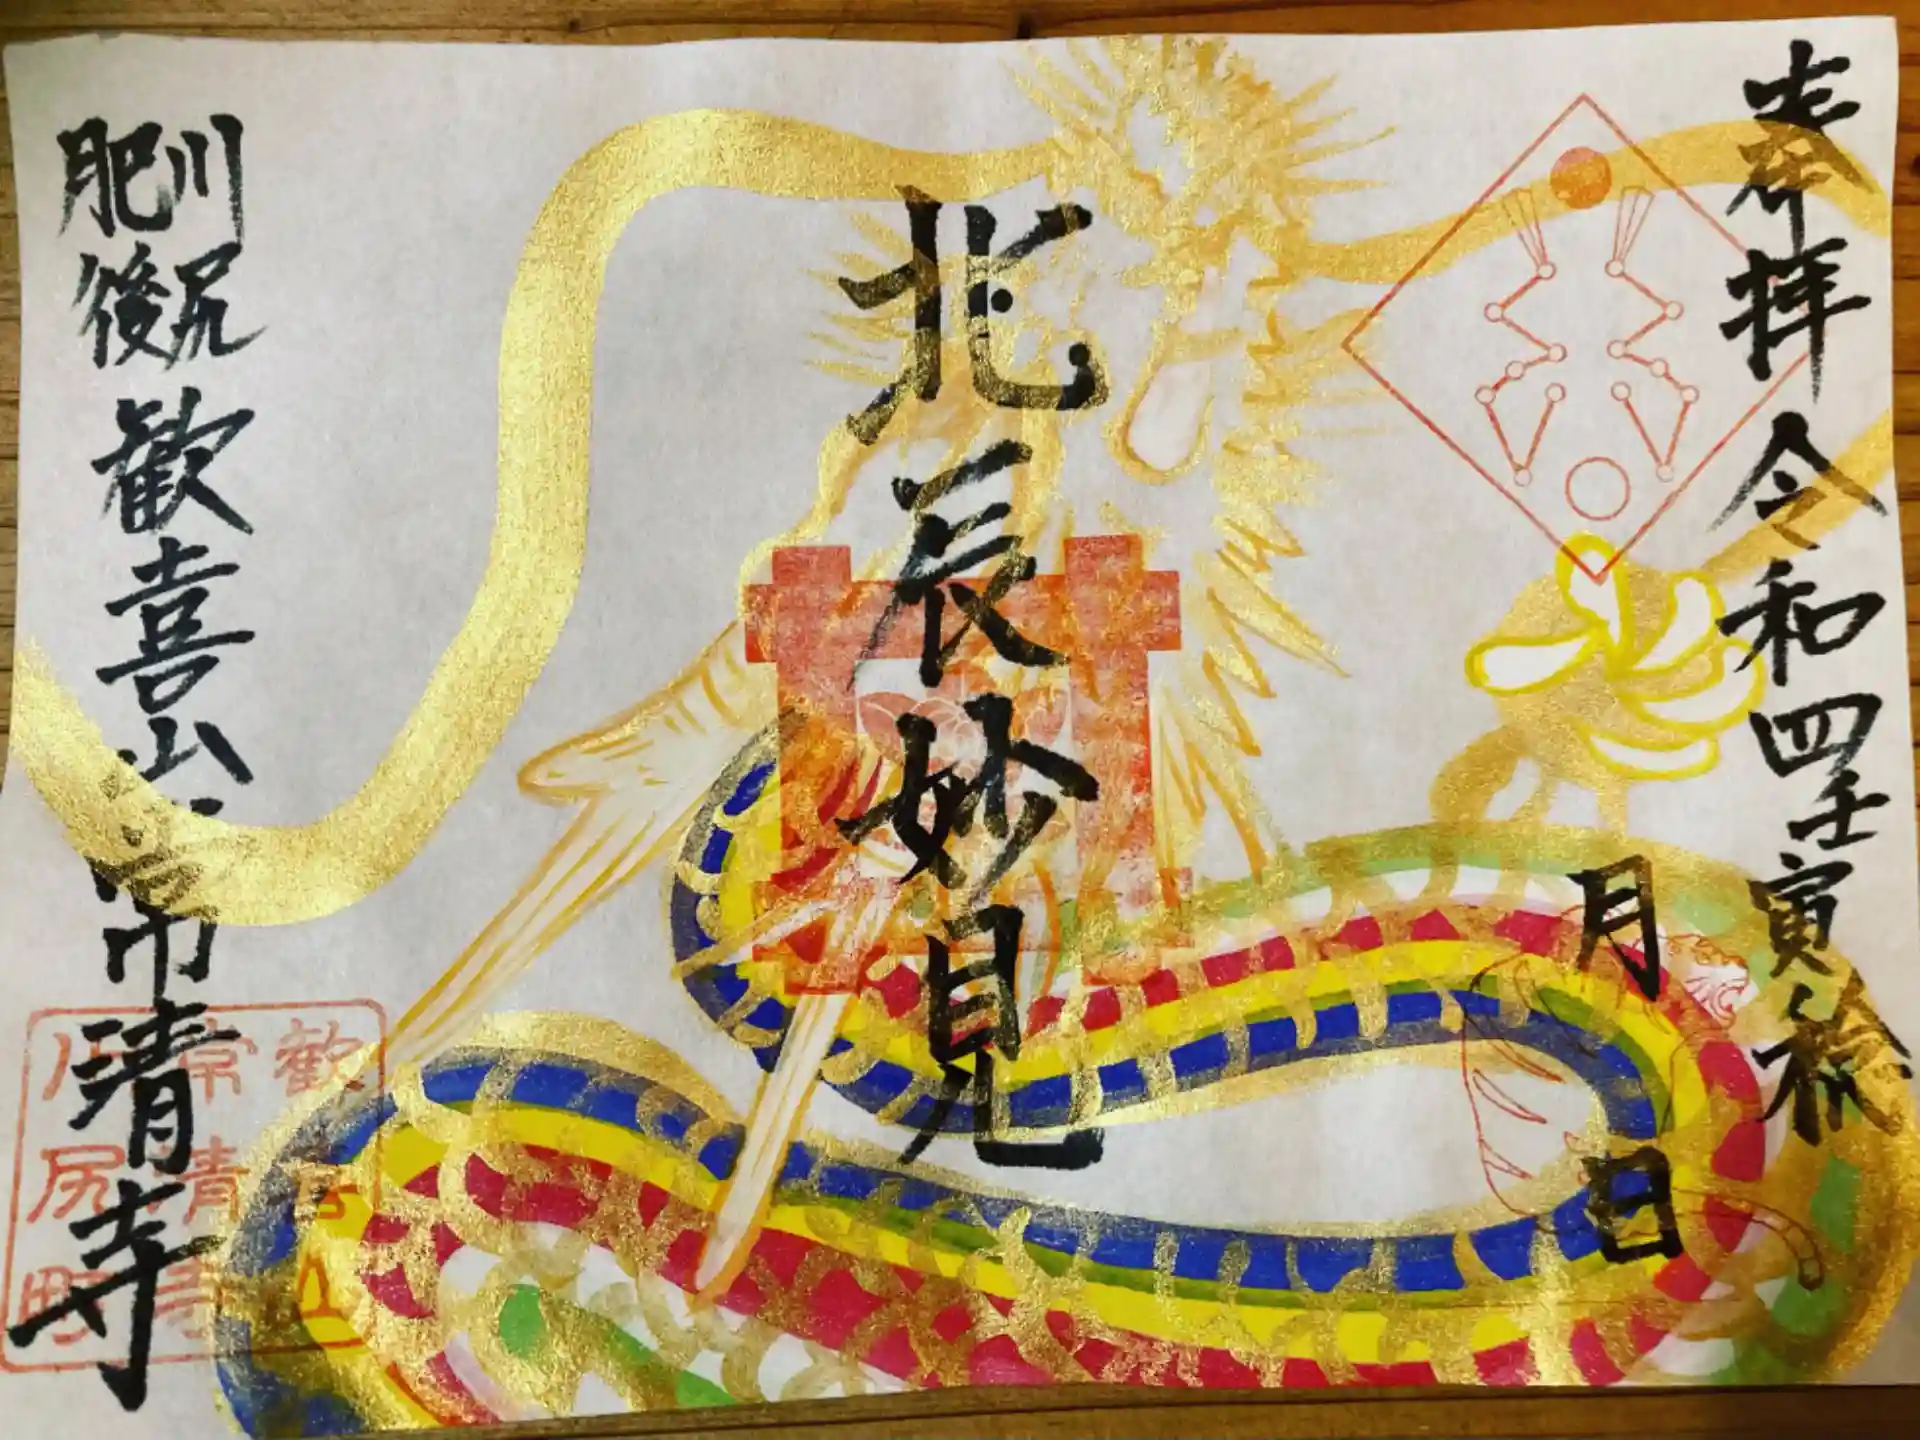 奉拝 令和四壬寅秋
月 日
北辰妙見
川尻
肥後 歓喜山 常清寺
歓喜山
常清寺
川尻町